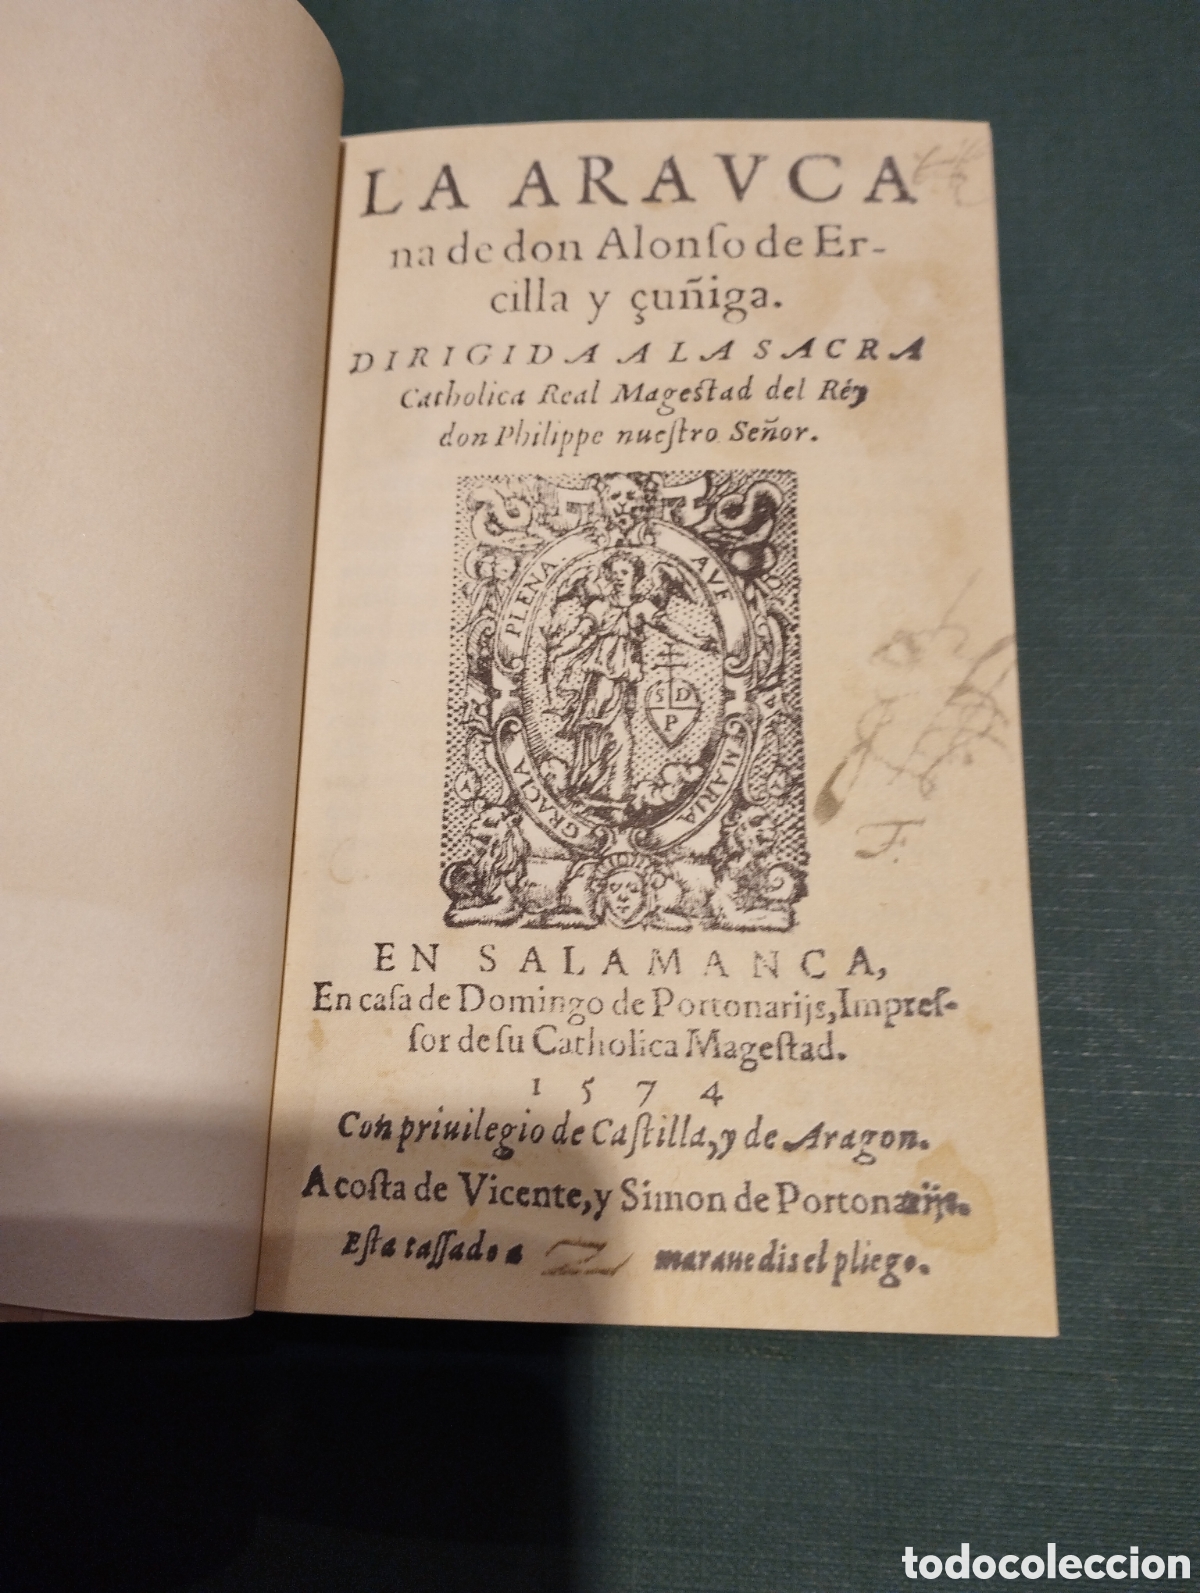 LA ARAVCA
na de don Alonſo de Er-
cilla y çuñiga.
DIRIGIDA A LA SACRA
Catholica Real Mageſtad del Réy
don Philippe nueſtro Señor.
AVE
MARIA
GRACIA
PLENA.
S D
P
EN SALAMANCA,
En caſa de Domingo de Portonarijs, Impreſ-
ſor de ſu Catholica Mageſtad.
1574
Con priuilegio de Caſtilla, y de Aragon.
A coſta de Vicente, y Simon de Portonarijs.
Eſta taſſado a maravedis el pliego.
F.
todocoleccion